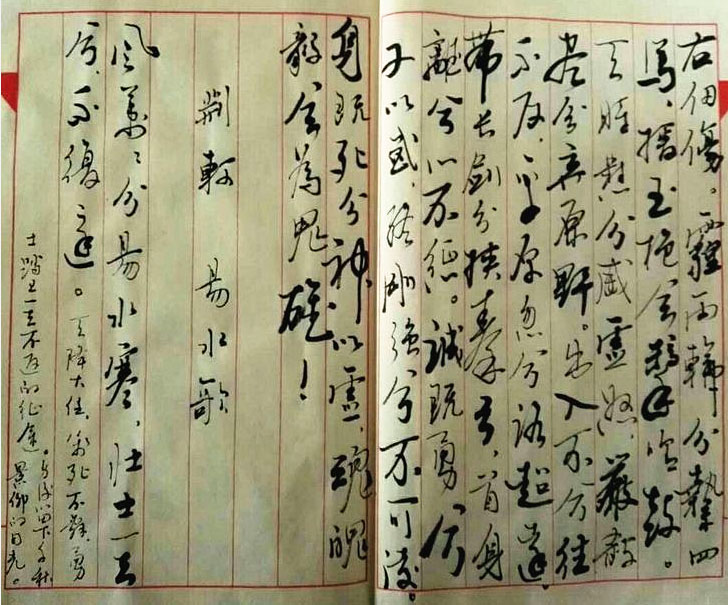 右傷。霾兩輪兮縶四
馬,援玉枹兮擊鳴鼓。
天時懟兮威靈怒,嚴殺
盡兮棄原野。出入不兮往
不反,平原忽兮路超遠,
帶長劍兮挾秦弓,首身
離兮心不懲。誠既勇兮
又以武,終剛強兮不可凌。
身既死兮神以靈,魂魄
毅兮為鬼雄!
荆軻 易水歌
風蕭〻兮易水寒,壯士一去
兮,不復還。天降大任,死不辭,勇
士踏上一去不返的征途。身後留下千秋
景仰的目光。